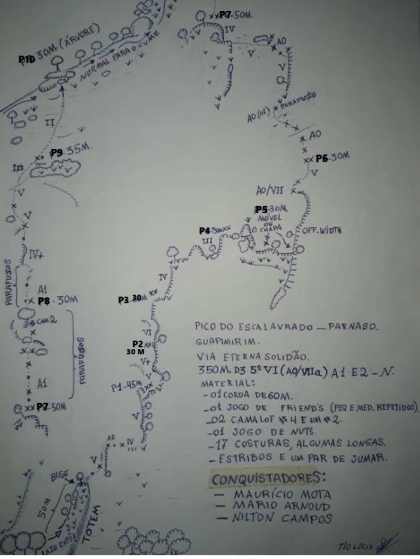 P7-50M.
IV
P10 30M (ÁRVORE)
NORMAL PARA O CUME
A0
V
V
II
A0 (01) PARAFUSO
A0
P9-35M.
P6-30M
III
V
V
A0/VII
P5-30M.
MÓVEL
OU
CHAPA
P4
OFF.WIDTH
III
V
IV+
IV
PARAFUSOS
A1
P3 30M
P8-30M
CAM2
VI
P2
30 M
PARAFUSOS
V+
A1
P1-45M
P7-50M
A0 IV
V
BASE
50M
TOTEM
PICO DO ESCALAVRADO - PARNASO.
GUAPIMIRIM.
VIA ETERNA SOLIDÃO.
350M. D3 5º VI (A0/VIIa) A1 E2 - N.
MATERIAL:
-01 CORDA DE 60M.
-01 JOGO DE FRIENDS (PEQ E MED. REPETIDOS)
-02 CAMALOT #4 E UM #2.
-01 JOGO DE NUTS.
-17 COSTURAS, ALGUMAS LONGAS.
-ESTRIBOS E UM PAR DE JUMAR.
CONQUISTADORES:
- MAURÍCIO MOTA
- MÁRIO ARNOUD
- NILTON CAMPOS